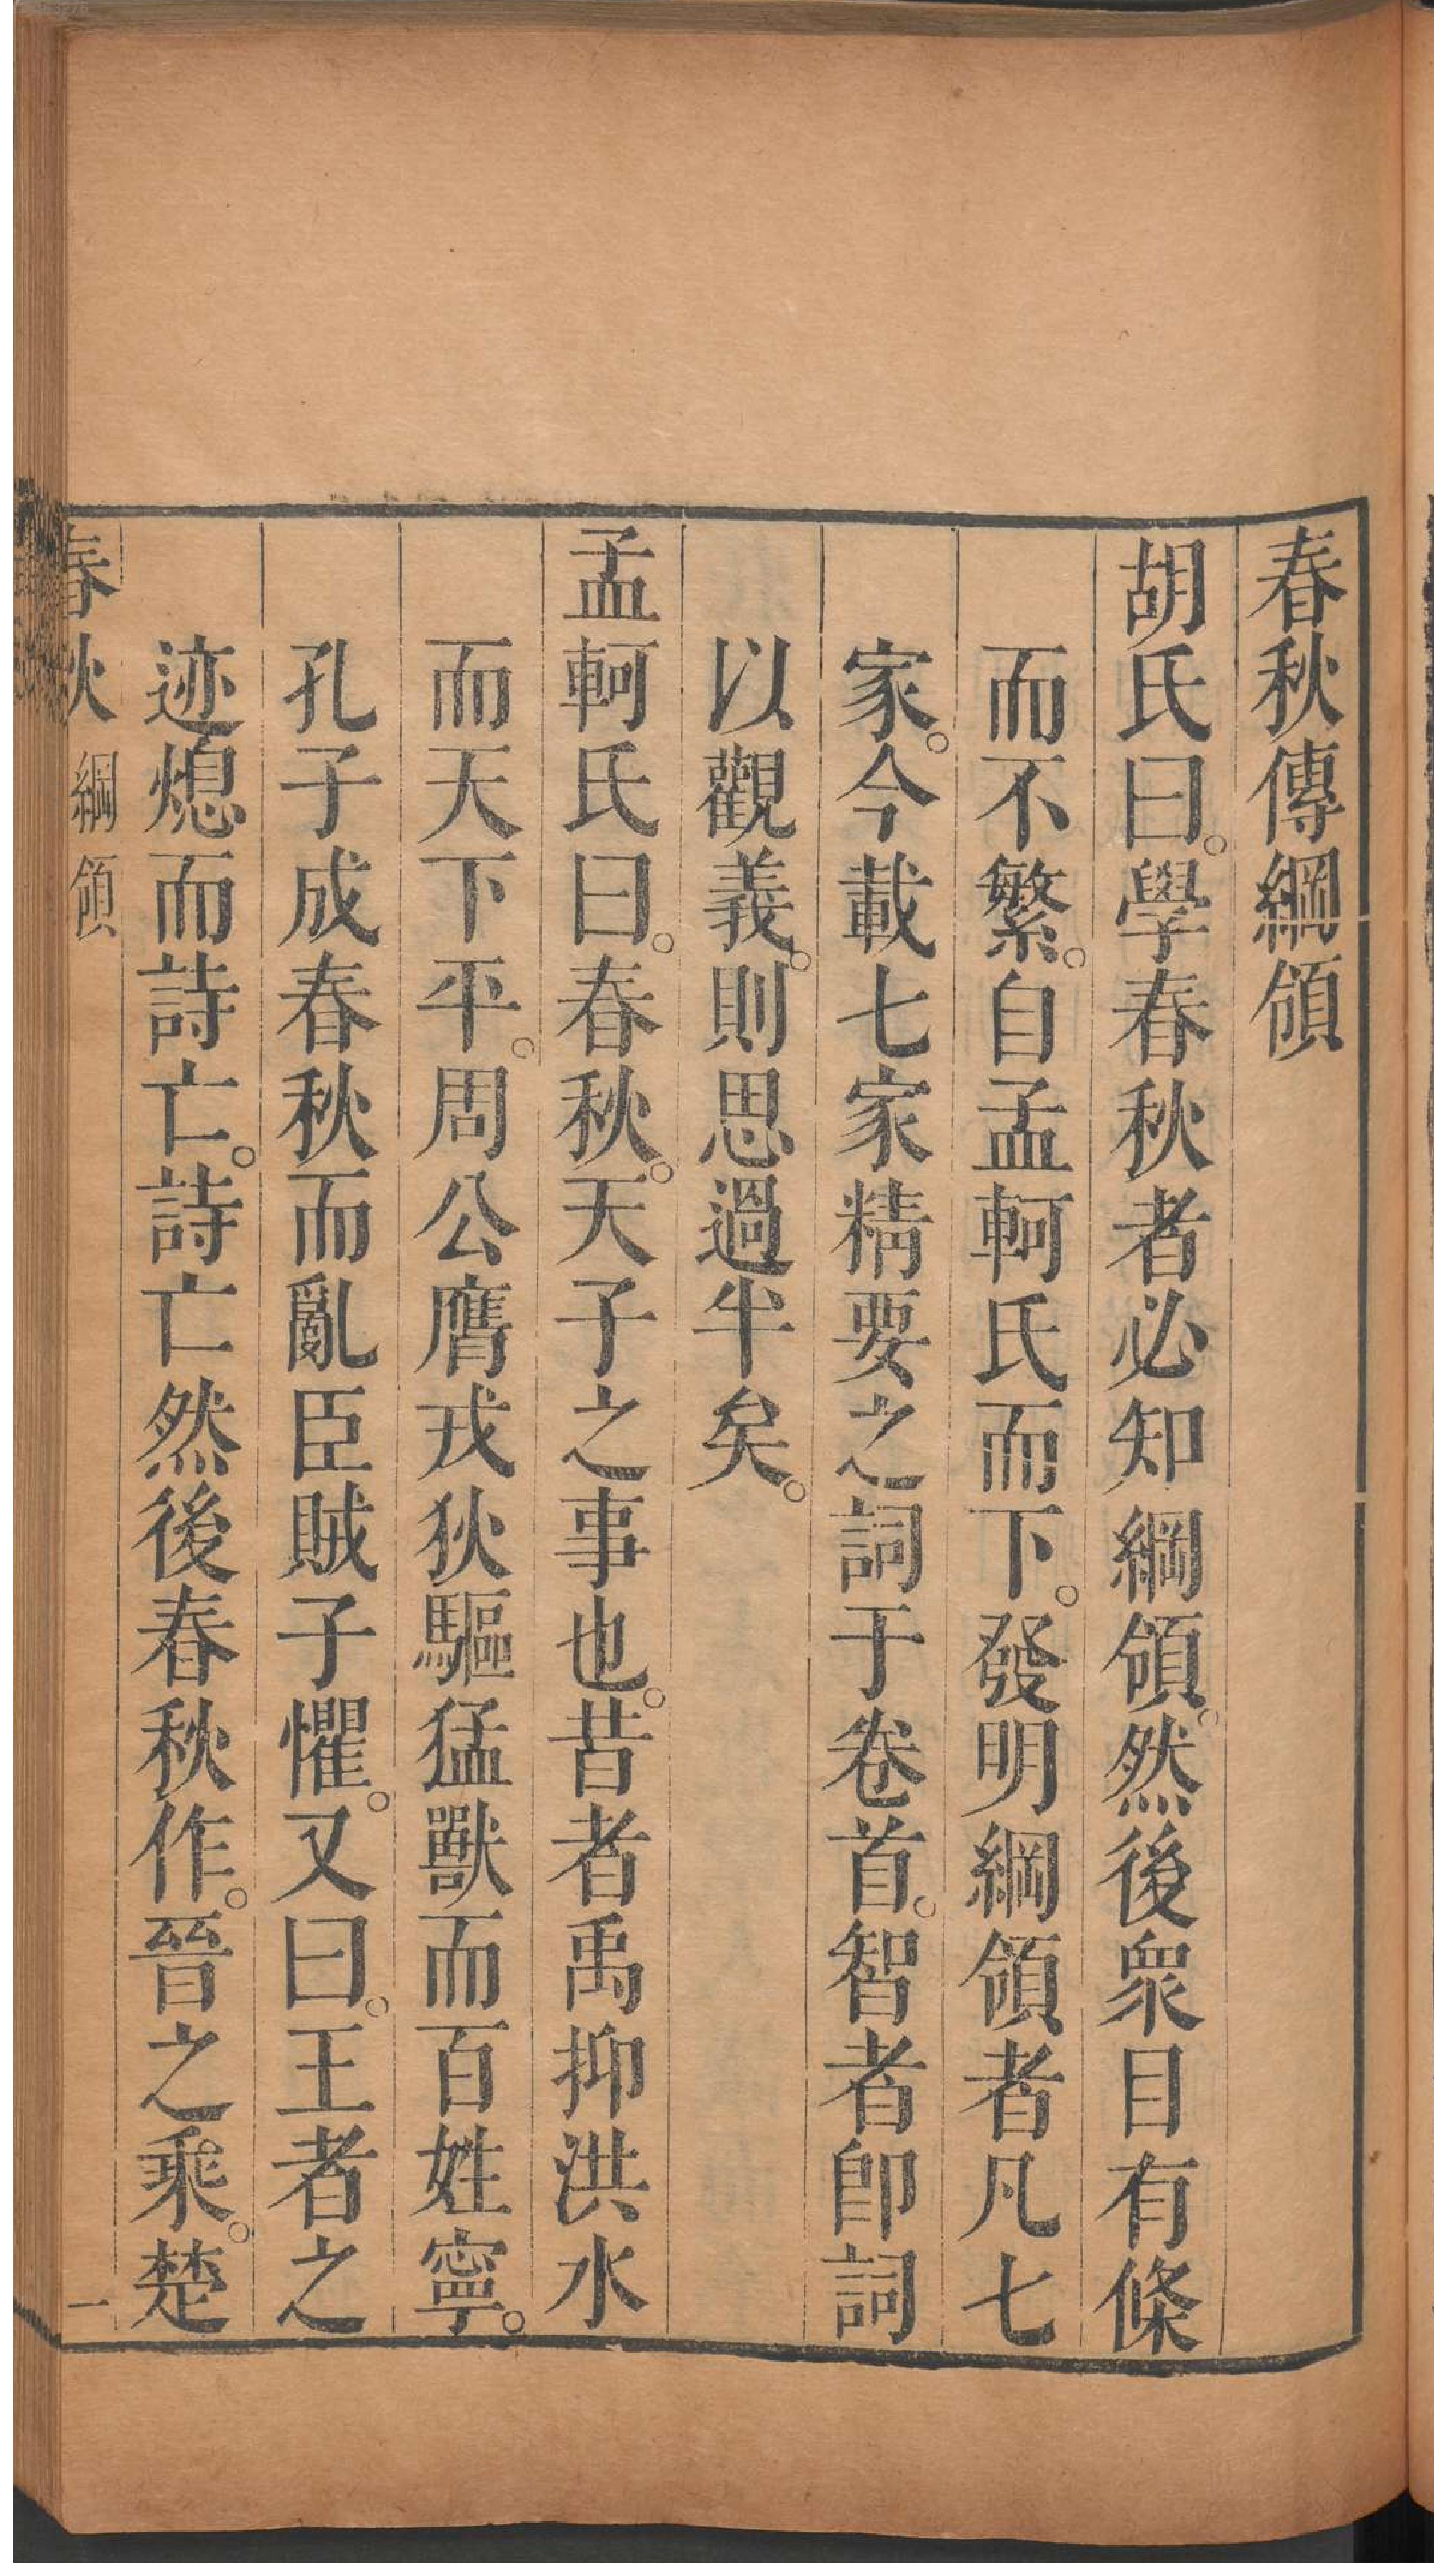 春秋傳綱領
胡氏曰。學春秋者必知綱領。然後衆目有條
而不繁。自孟軻氏而下。發明綱領者凡七
家。今載七家精要之詞于卷首。智者卽詞
以觀義。則思過半矣。
孟軻氏曰。春秋。天子之事也。昔者禹抑洪水
而天下平。周公膺戎狄驅猛獸而百姓寧。
孔子成春秋而亂臣賊子懼。又曰。王者之
迹熄而詩亡。詩亡然後春秋作。晉之乘。楚
春秋 綱領 一